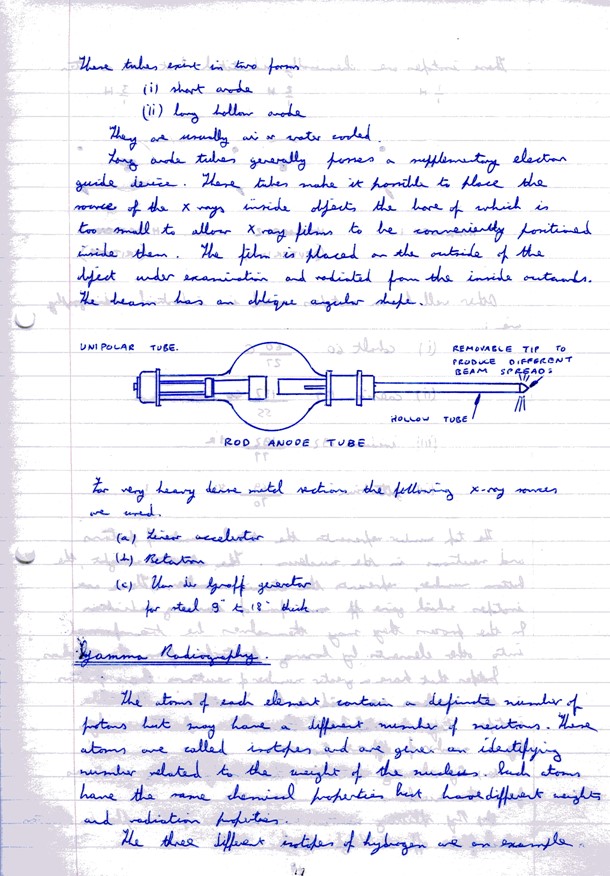 These tubes exist in two forms
(i) short anode
(ii) long hollow anode
They are usually air or water cooled.
Long anode tubes generally posses a supplementary electron
guide device. These tubes make it possible to place the
source of the X rays inside objects the bore of which is
too small to allow X ray films to be conveniently positioned
inside them. The film is placed on the outside of the
object under examination and radiated from the inside outwards.
The beam has an oblique angular shape.
UNIPOLAR TUBE.
REMOVABLE TIP TO
PRODUCE DIFFERENT
BEAM SPREADS
HOLLOW TUBE
ROD ANODE TUBE
For very heavy dense metal sections the following x-ray sources
are used.
(a) Linear accelerator
(b) Betatron
(c) Van der Graff generator
for steel 9" to 18" thick.
Gamma Radiography.
The atoms of each element contain a definate number of
protons but may have a different number of neutrons. These
atoms are called isotopes and are given an identifying
number related to the weight of the nucleus. Such atoms
have the same chemical properties but have different weights
and radiation properties.
The three different isotopes of hydrogen are an example.